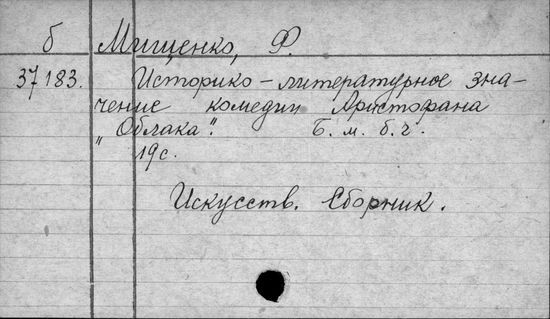 б Мищенко, Ф.
37183. Историко-литературное зна-
чение комедии Аристофана
„Облака". Б. м. б. г.
19 с.
Искусств. Сборник.